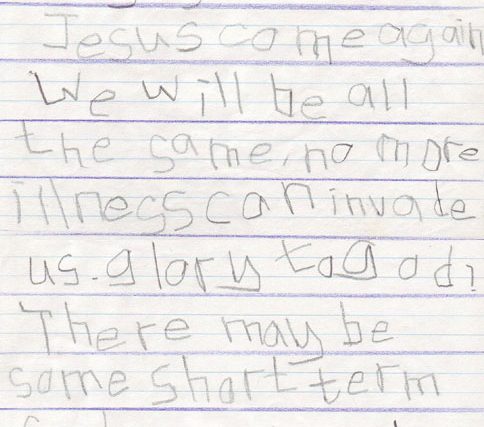 Jesus come again
We will be all
the same. no more
illness can invade
us. glory to god!
There may be
some short term